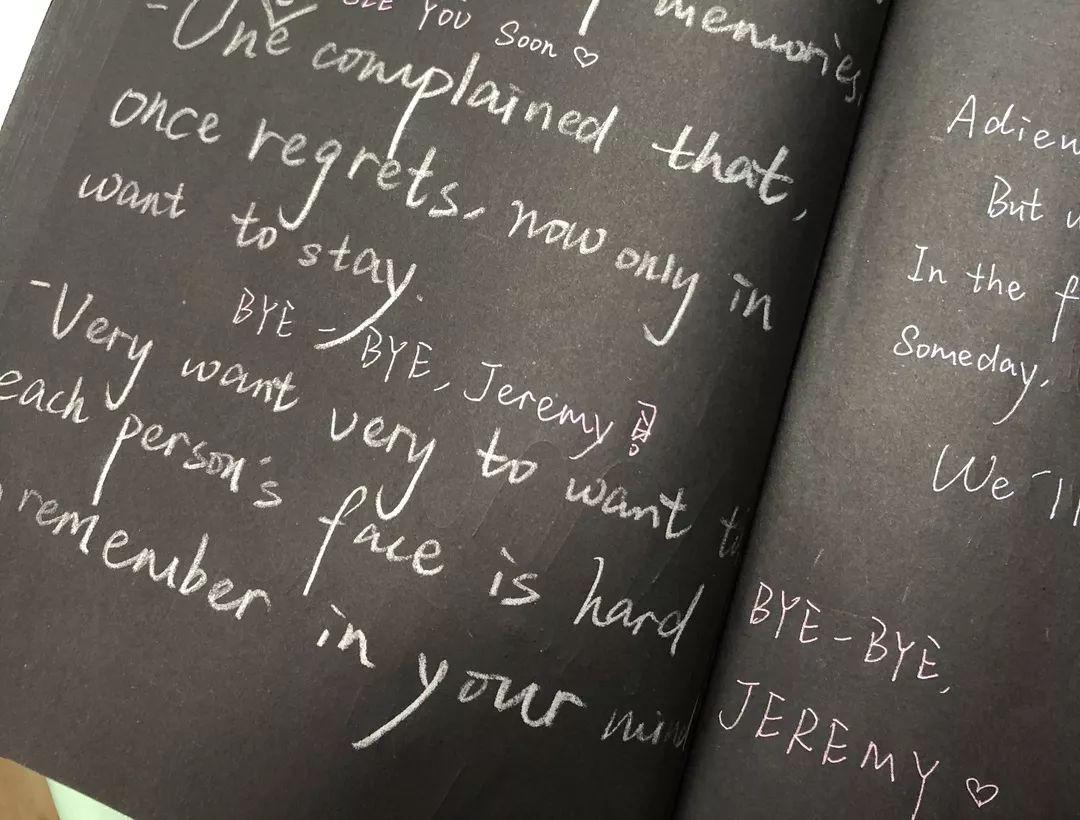 memories
SEE YOU Soon ♡
-One complained that,
once regrets, now only in
want to stay.
BYE-BYE, Jeremy!
-Very want very to want to
each person's face is hard
remember in your mind
But
In the
Someday,
We'll
BYE-BYE,
JEREMY ♡